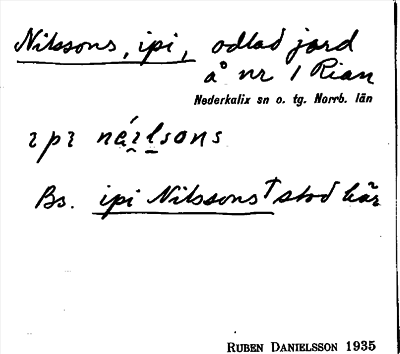 Nilssons, ipi, odlad jord
å nr 1 Rian
Nederkalix sn o. tg. Norrb. län
ɿpɿ nä́ɿlsons
Bs. ipi Nilssons† stod här
RUBEN DANIELSSON 1935